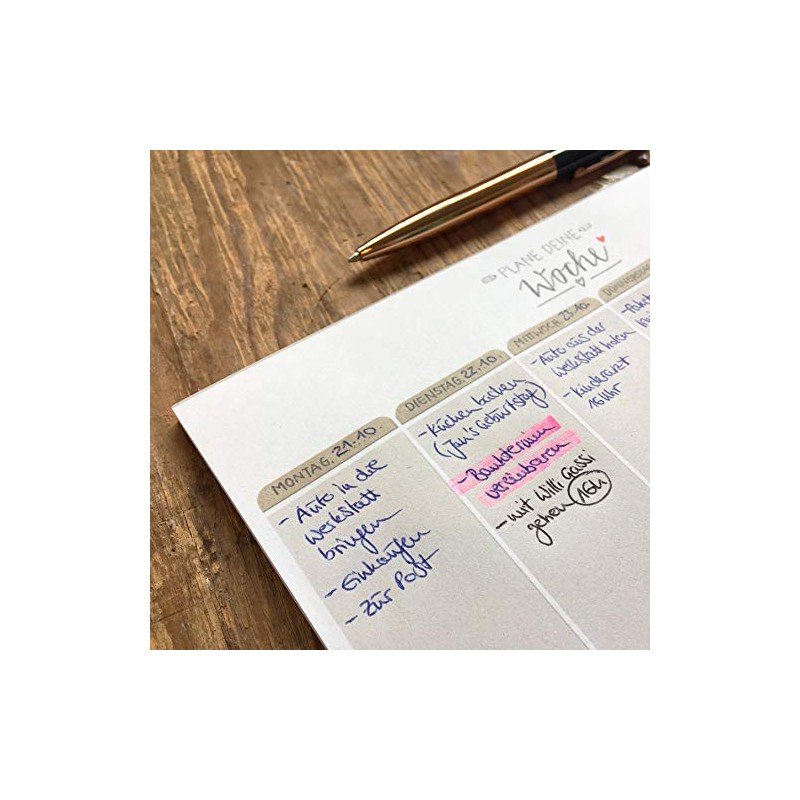 PLANE DEINE
Woche
MONTAG, 21.10.
- Auto in die
Werkstatt
bringen
- Einkaufen
- Zur Post
DIENSTAG, 22.10.
- Kuchen backen
(Jan's Geburtstag)
- Banktermin
vereinbaren
- mit Willi Gassi
gehen 16h
MITTWOCH 23.10.
- Auto aus der
Werkstatt holen
- Kinderarzt
16 Uhr